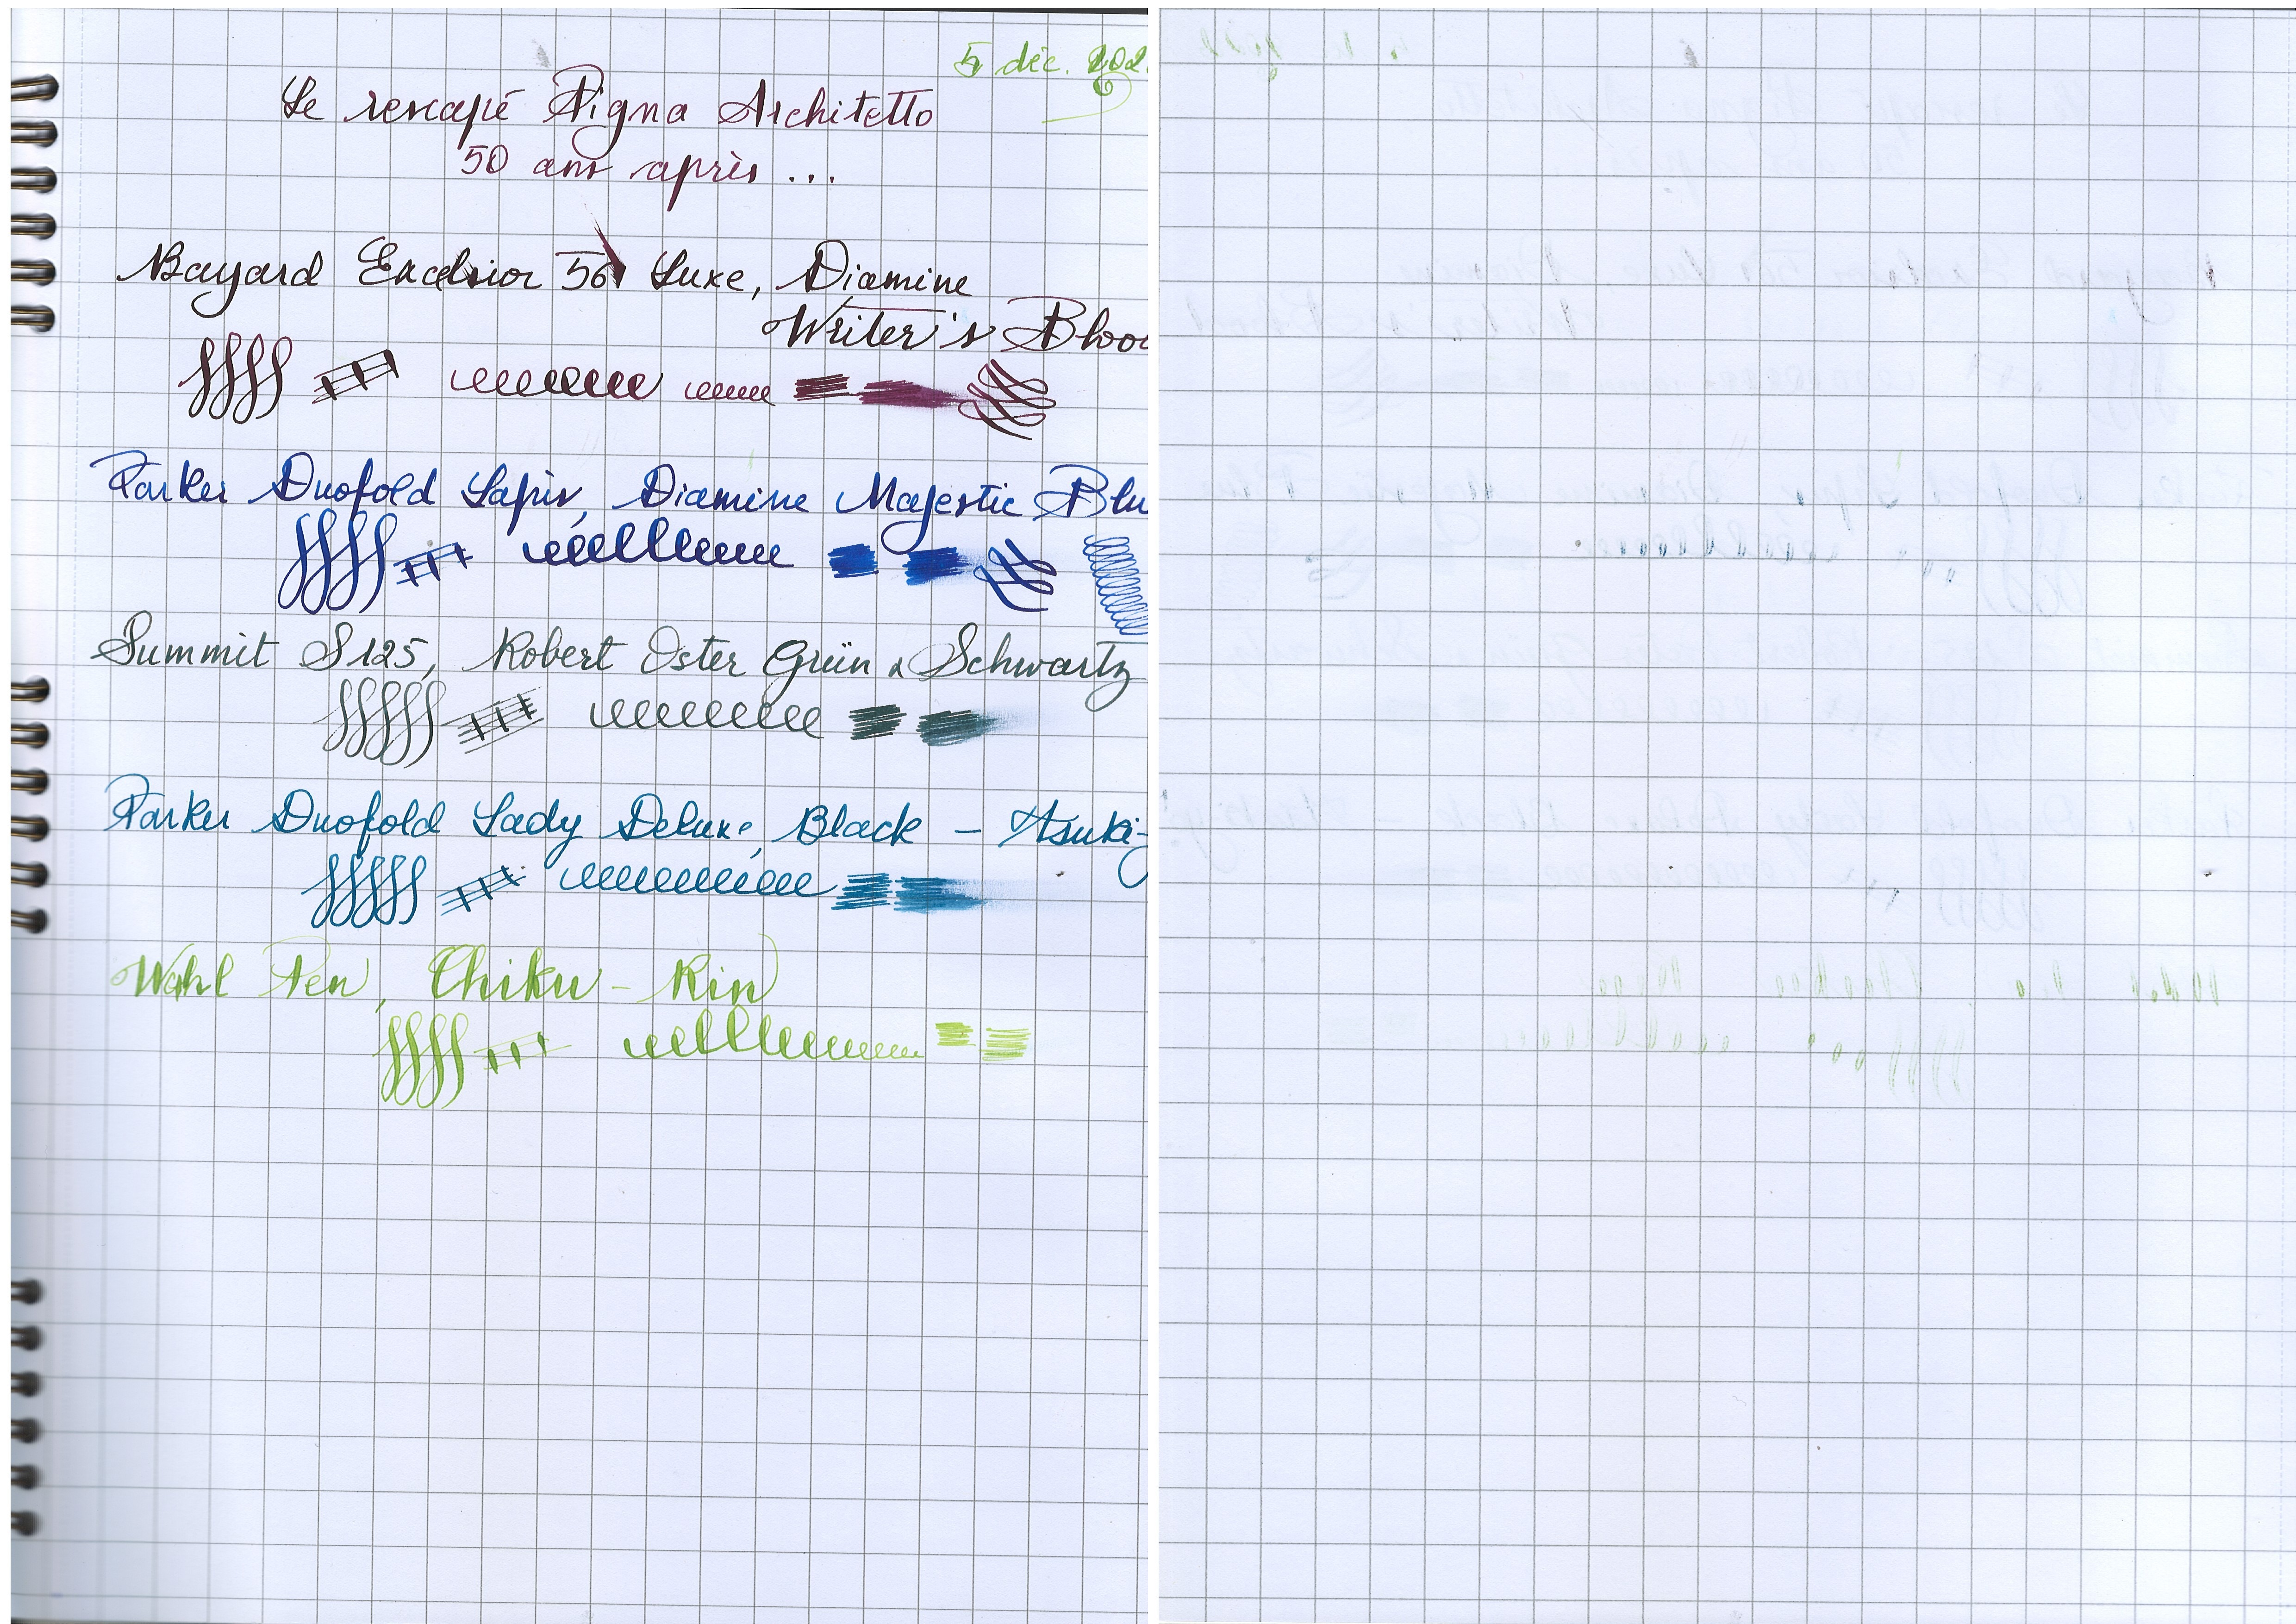 5 déc. 202
Le rescapé Pigna Architetto
50 ans après ...
Bayard Excelsior 56 Luxe, Diamine
Writer's Bloo
Parker Duofold Lapis, Diamine Majestic Blu
Summit S125, Robert Oster Grün & Schwartz
Parker Duofold Lady Deluxe, Black - Tsuki-
Wahl Pen, Chiku-Rin